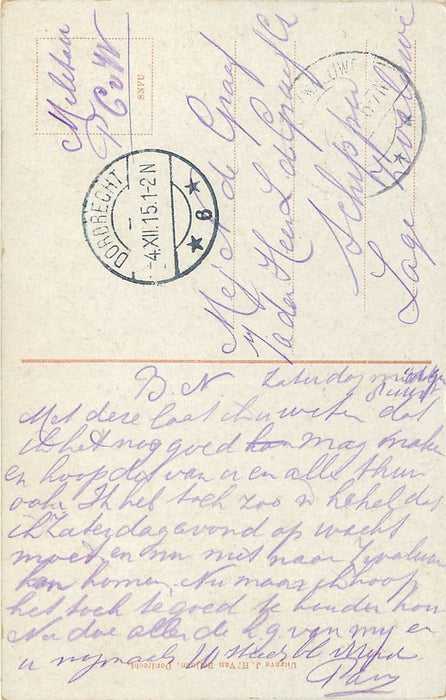 Militair
PCvW
SNFU
DORDRECHT
-4.XII.15.1-2 N
6
Mej. C. de Graaf
p/a den Heer L de Graaf
Schipper
Lage Zwaluwe
B. N. Zaterdag middag
Met deze laat ik u weten dat
ik het nog goed kan mag maken
en hoop dat van u en alle thuis
ook. Ik heb toch zoo 'n hekel dat
ik Zaterdagavond op wacht
moet en nu niet naar Zwaluwe
kan komen. Nu maar ik hoop
het toch tegoed te houden hoor
Nu doe allen de h.g. van mij en
u nogmaals
Uitgave J. H. Van
Dordrecht